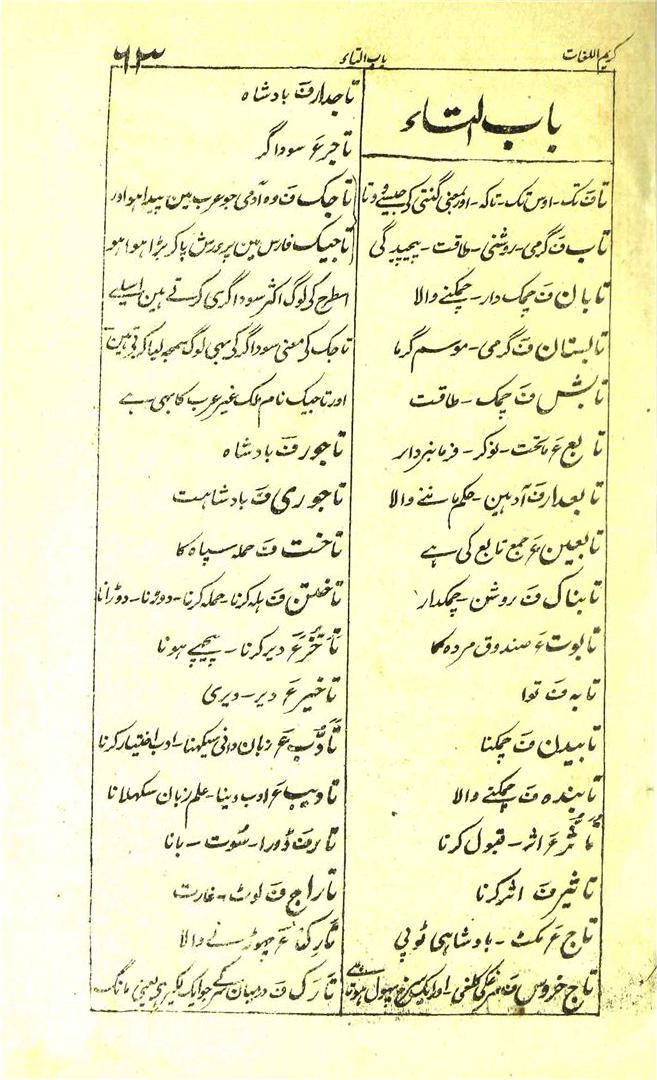 کریم اللغات
باب التاء
۶۳
باب التاء
تا ف تک - اوس تک - تاکہ - اور بمعنی گنتی کی جیسے دوتا
تاب ف گرمی - روشنی - طاقت - پیچیدگی
تابان ف چمک دار - چمکنے والا
تابستان ف گرمی - موسم گرما
تابش ف چمک - طاقت
تابع ع ماتحت - نوکر - فرمانبردار
تابعدار ف آدہین - حکم ماننے والا
تابعین ع جمع تابع کی ہے
تابناک ف روشن - چمکدار
تابوت ع صندوق مردہ کا
تابہ ف توا
تابیدن ف چمکنا
تابندہ ف چمکنے والا
تاثر ع اثر - قبول کرنا
تاثیر ف اثر کرنا
تاج ع مکٹ - بادشاہی ٹوپی
تاج خروس ف مرغ کی کلغی - اور ایک سرخ پہول ہوتا ہے
تاجدار ف بادشاہ
تاجر ع سوداگر
تاجک ف وہ آدمی جو عرب مین پیدا ہو اور
تاجیک فارس مین پرورش پاکر بڑا ہوا ہو
اسطرح کی لوگ اکثر سوداگری کرتے ہین اسلیے
تاجک کی معنی سوداگر کی بہی لوگ سمجہ لیا کرتی ہین
اور تاجیک نام ملک غیر عرب کا بہی ہے
تاجور ف بادشاہ
تاجوری ف بادشاہت
تاخت ف حملہ سپاہ کا
تاختن ف ہلہ کرنا - حملہ کرنا - دوڑنا - دوڑانا
تاخر ع دیر کرنا - پیچہے ہونا
تاخیر ع دیر - دیری
تادب ع زبان دانی سیکہنا - ادب اختیار کرنا
تادیب ع ادب دینا - علم زبان سکہلانا
تار ف ڈورا - سوت - بانا
تاراج ف لوٹ - غارت
تارک ع چہوڑنے والا
تارک ف درمیان سر کے جو ایک لکیر ہی یعنی مانگ